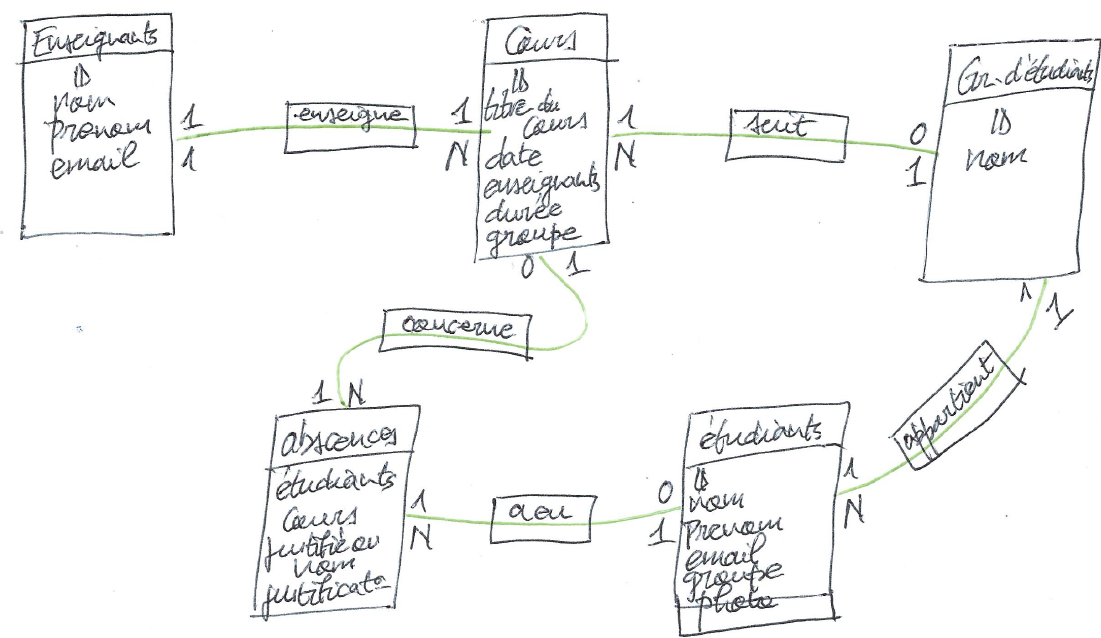 Enseignants
ID
nom
prenom
email
1
1
enseigne
1
N
Cours
ID
titre du
Cours
date
enseignants
durée
groupe
1
N
suit
0
1
Gr. d'étudiants
ID
nom
0 1
concerne
1 N
abscences
étudiants
Cours
justifié ou
nom
justificat°
1
N
a eu
0
1
étudiants
ID
nom
Prenom
email
groupe
photo
1
N
appartient
1 1